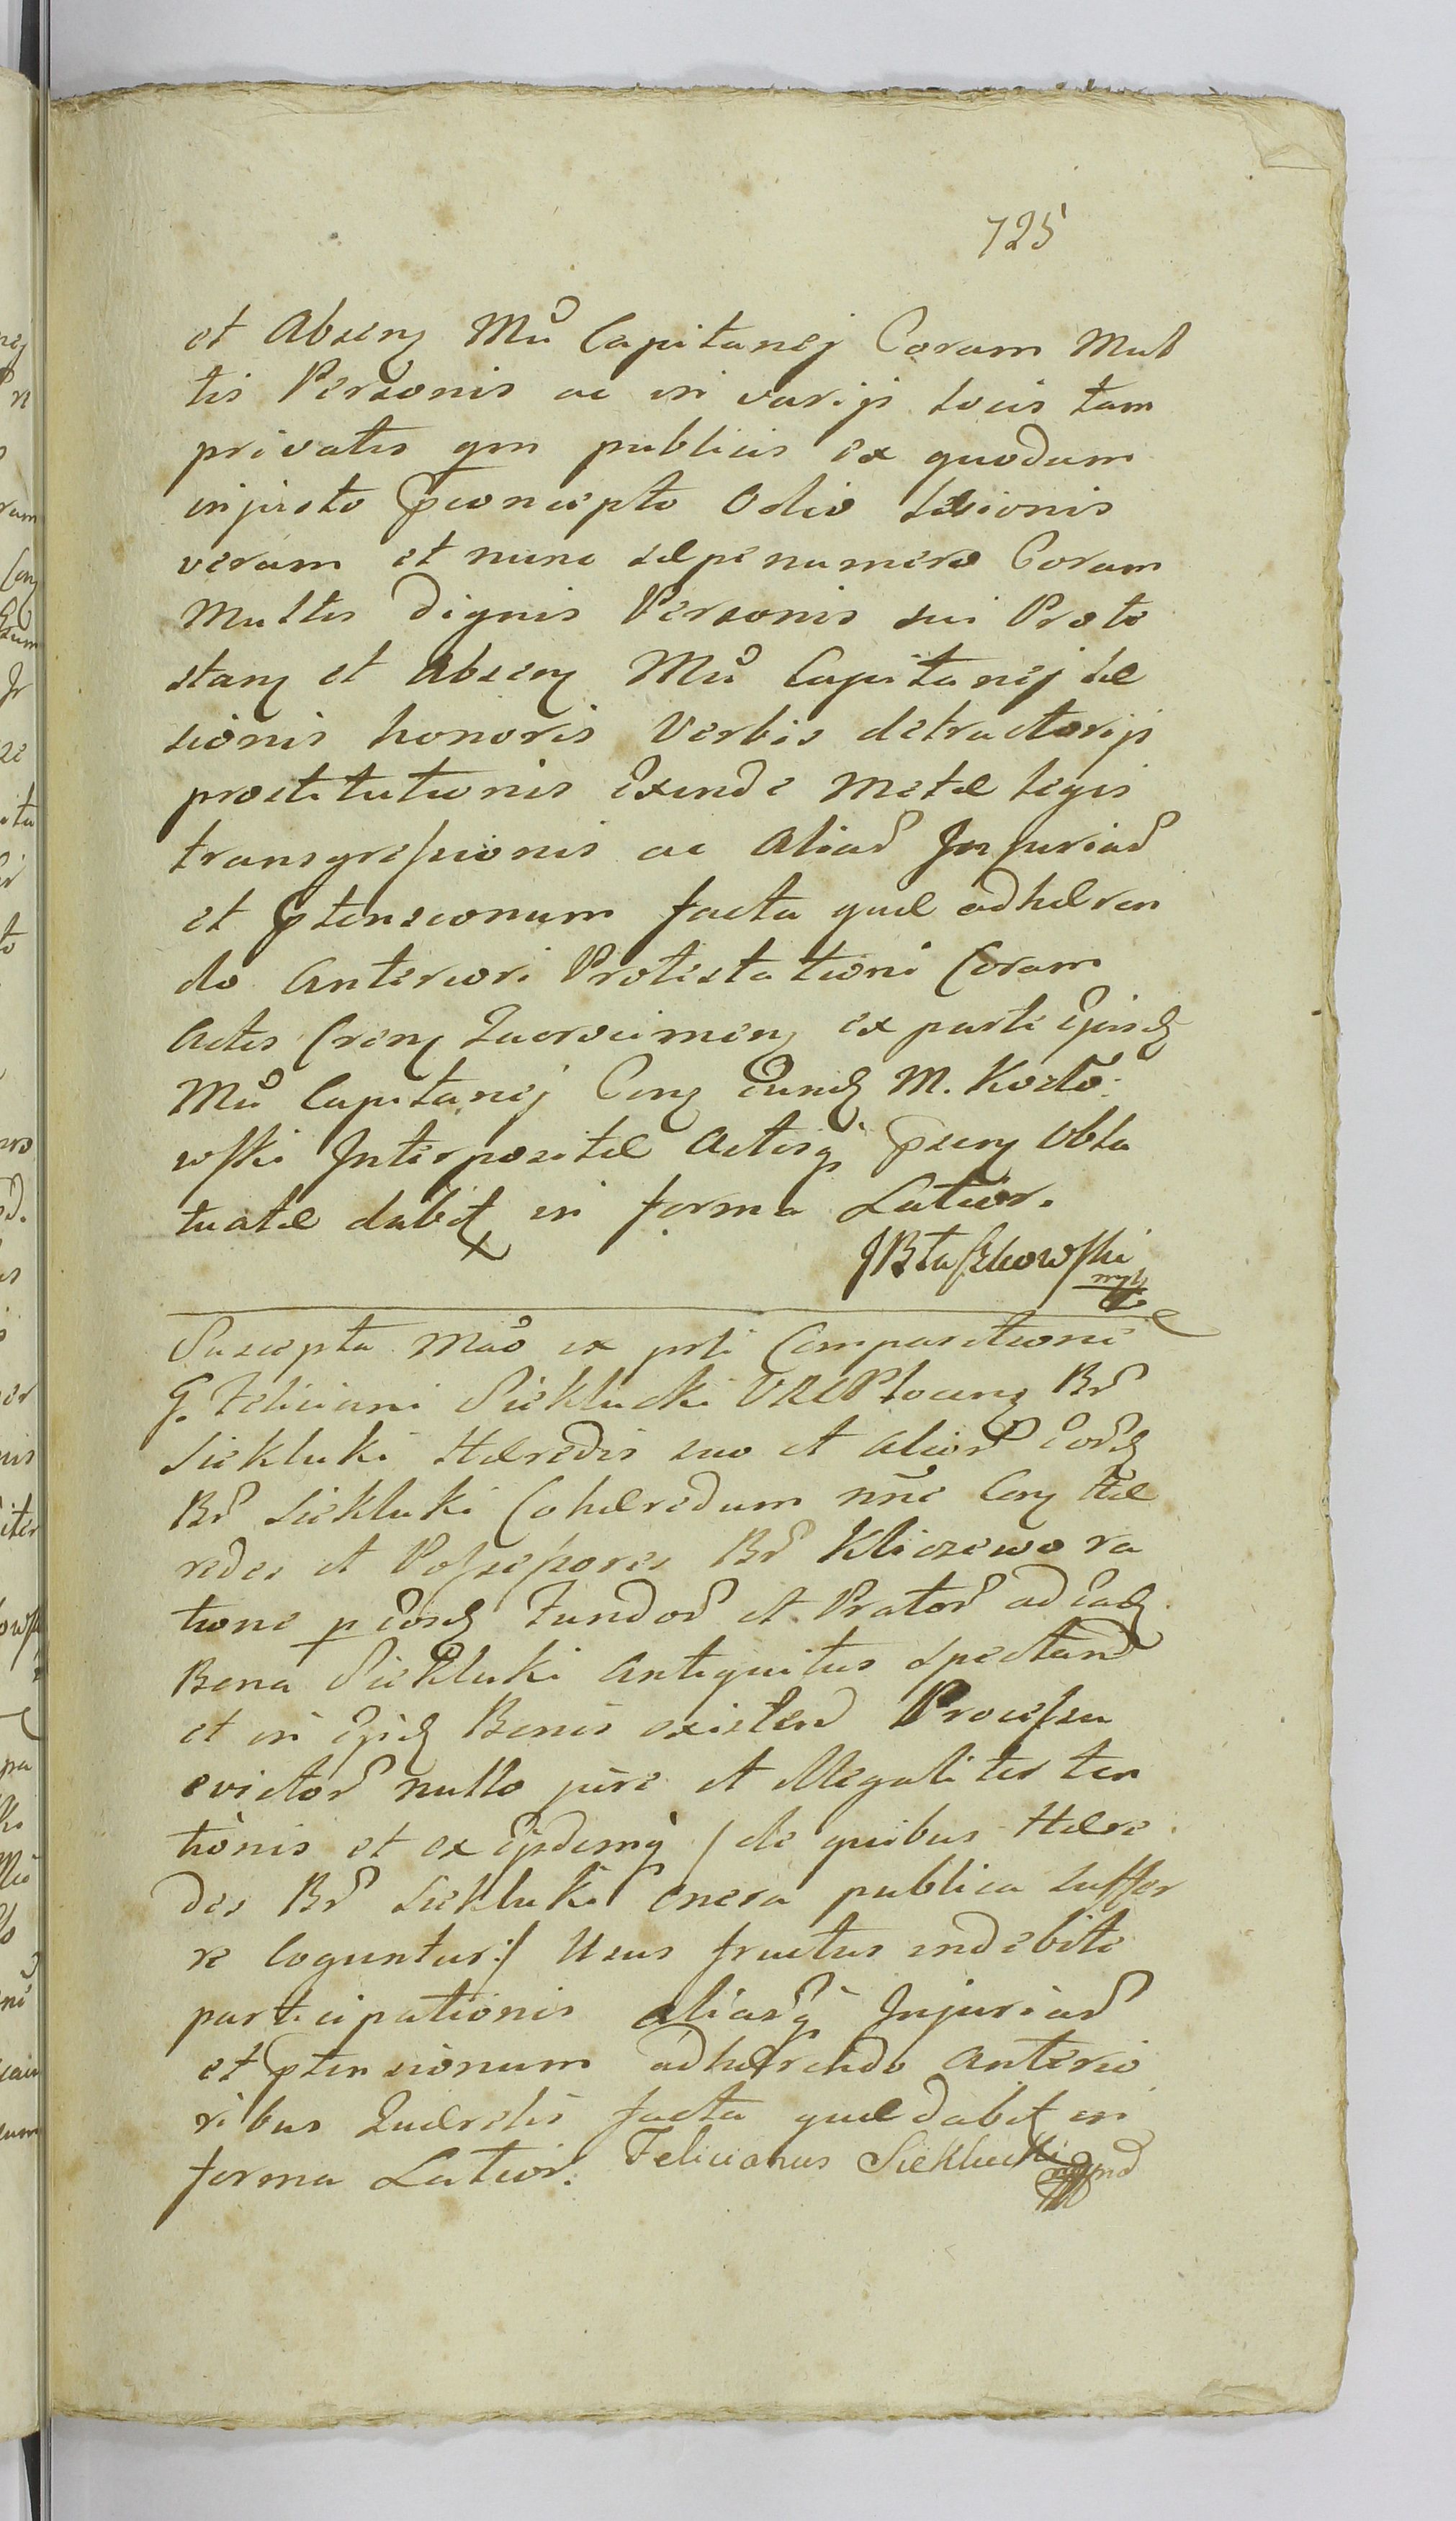 725
et Absenz Mů Capitanej Coram Mul
tis Personis ac in varijs locis tam
privatis qm publicis ex quodam
injusto Pconcepto Odio Læsionis
verum et nunc sæpenumero Coram
Multis Dignis Personis sui Prote
stanz et Absenz Mů Capitanej Læ
sionis honoris Verbis detractorijs
prostitutionis Exinde Metæ legis
transgressionis ac Aliar Injuriar
et Ptensionum facta quæ adhæren
do Anteriori Protestationi Coram
Actis Crenz Zacrocimenz ex parte Ejusd
Mů Capitanej Conz Eund M. Kozło
wski Interpositæ Actisq Psenz Obla
tuatæ dabit in forma Latior.
JBłaszkowski
mpp
Suscepta Mao ex prti Comparitione
G. Feliciani Siekłucki VRCPłocenz Br
Siekluki Hæredis suo et alior eord
Br Siekluki Cohæredum nne Conz Hæ
redes et Possessores Br Kliczewo ra
tione p eosd Fundor et Prator ad ead
Bona Siekluki Antiquitus spectan
et in ijsd Bonis existen Processu
evictor nullo jure et Illegaliter ten
tionis et ex ijsdemq / de quibus Hære
des Br Siekluki onera publica suffer
re coguntur:/ Usus fructus indebite
participationis aliarq Injuriar
et Ptensionum adhærendo Anterio
ribus Quærelis facta quæ dabit in
forma Latior. Felicianus Siekłucki